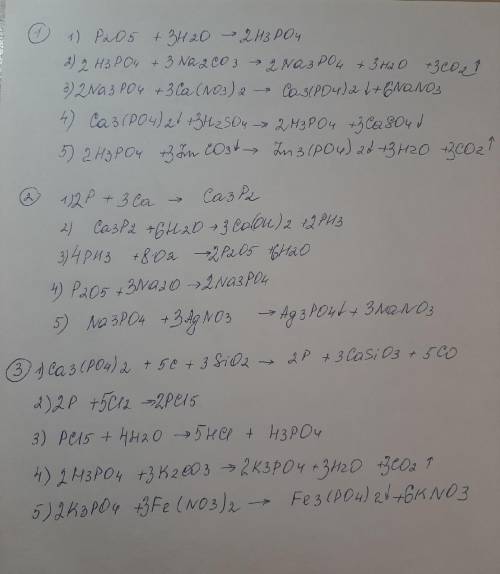 ① 1) P2O5 + 3H2O → 2H3PO4
2) 2H3PO4 + 3Na2CO3 → 2Na3PO4 + 3H2O + 3CO2↑
3) 2Na3PO4 + 3Ca(NO3)2 → Ca3(PO4)2↓ + 6NaNO3
4) Ca3(PO4)2↓ + 3H2SO4 → 2H3PO4 + 3CaSO4↓
5) 2H3PO4 + 3ZnCO3↓ → Zn3(PO4)2↓ + 3H2O + 3CO2↑
② 1) 2P + 3Ca → Ca3P2
2) Ca3P2 + 6H2O → 3Ca(OH)2 + 2PH3
3) 4PH3 + 8O2 → 2P2O5 + 6H2O
4) P2O5 + 3Na2O → 2Na3PO4
5) Na3PO4 + 3AgNO3 → Ag3PO4↓ + 3NaNO3
③ 1) Ca3(PO4)2 + 5C + 3SiO2 → 2P + 3CaSiO3 + 5CO
2) 2P + 5Cl2 → 2PCl5
3) PCl5 + 4H2O → 5HCl + H3PO4
4) 2H3PO4 + 3K2CO3 → 2K3PO4 + 3H2O + 3CO2↑
5) 2K3PO4 + 3Fe(NO3)2 → Fe3(PO4)2↓ + 6KNO3